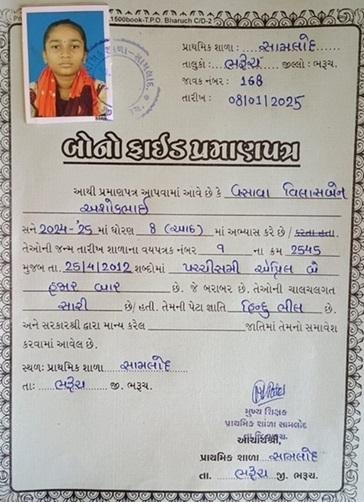 1500book-T.P.O. Bharuch C/D-2
પ્રાથમિક શાળા : સામલોદ
તાલુકો : ભરૂચ જીલ્લો : ભરૂચ.
જાવક નંબર : 168
તારીખ : 08/01/2025
બોનોફાઈડ પ્રમાણપત્ર
આથી પ્રમાણપત્ર આપવામાં આવે છે કે વસાવા વિલાસબેન
અશોકભાઈ
સને 2024-'25 માં ધોરણ 8 (આઠ) માં અભ્યાસ કરે છે / કરતા હતા.
તેઓની જન્મ તારીખ શાળાના વયપત્રક નંબર 9 ના ક્રમ 2545
મુજબ તા. 25/4/2012 શબ્દોમાં પચ્ચીસમી એપ્રિલ બે
હજાર બાર છે. જે બરાબર છે. તેઓની ચાલચલગત
સારી છે/હતી. તેમની પેટા જ્ઞાતિ હિન્દુ ભીલ છે.
અને સરકારશ્રી દ્વારા માન્ય કરેલ જાતિમાં તેમનો સમાવેશ
કરવામાં આવેલ છે.
સ્થળ: પ્રાથમિક શાળા સામલોદ
તા: ભરૂચ જી. ભરૂચ.
મુખ્ય શિક્ષક
પ્રાથમિક શાળા સામલોદ
આચાર્યશ્રી,
પ્રાથમિક શાળા સામલોદ
તા. ભરૂચ જી. ભરૂચ.